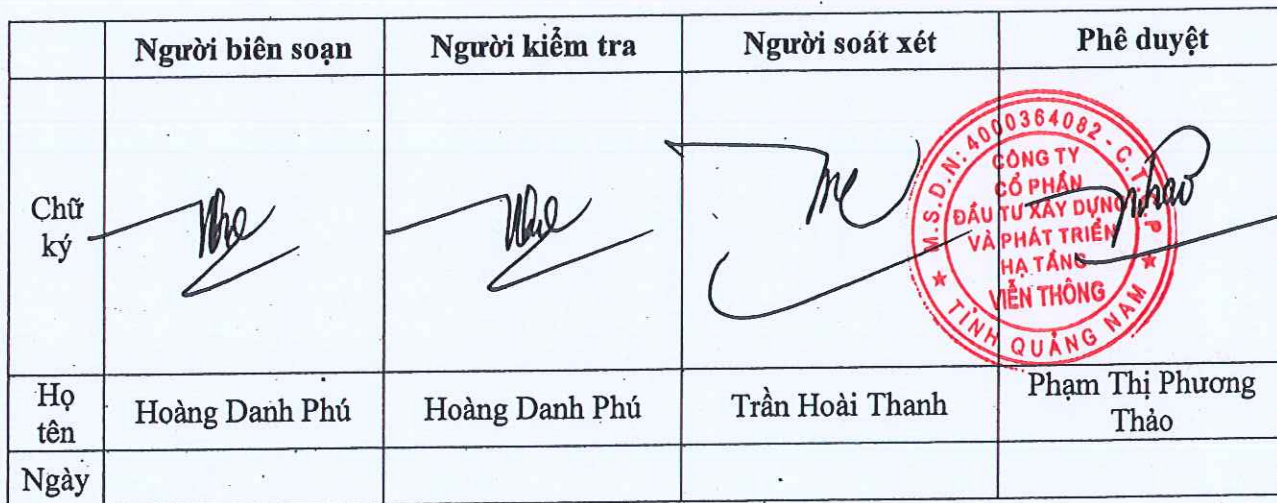 Người biên soạn Người kiểm tra Người soát xét Phê duyệt
Chữ
ký
M.S.D.N: 4000364082 - C.T.
CÔNG TY
CỔ PHẦN
ĐẦU TƯ XÂY DỰNG
VÀ PHÁT TRIỂN
HẠ TẦNG
VIỄN THÔNG
TỈNH QUẢNG NAM
Họ
tên
Hoàng Danh Phú Hoàng Danh Phú Trần Hoài Thanh Phạm Thị Phương
Thảo
Ngày